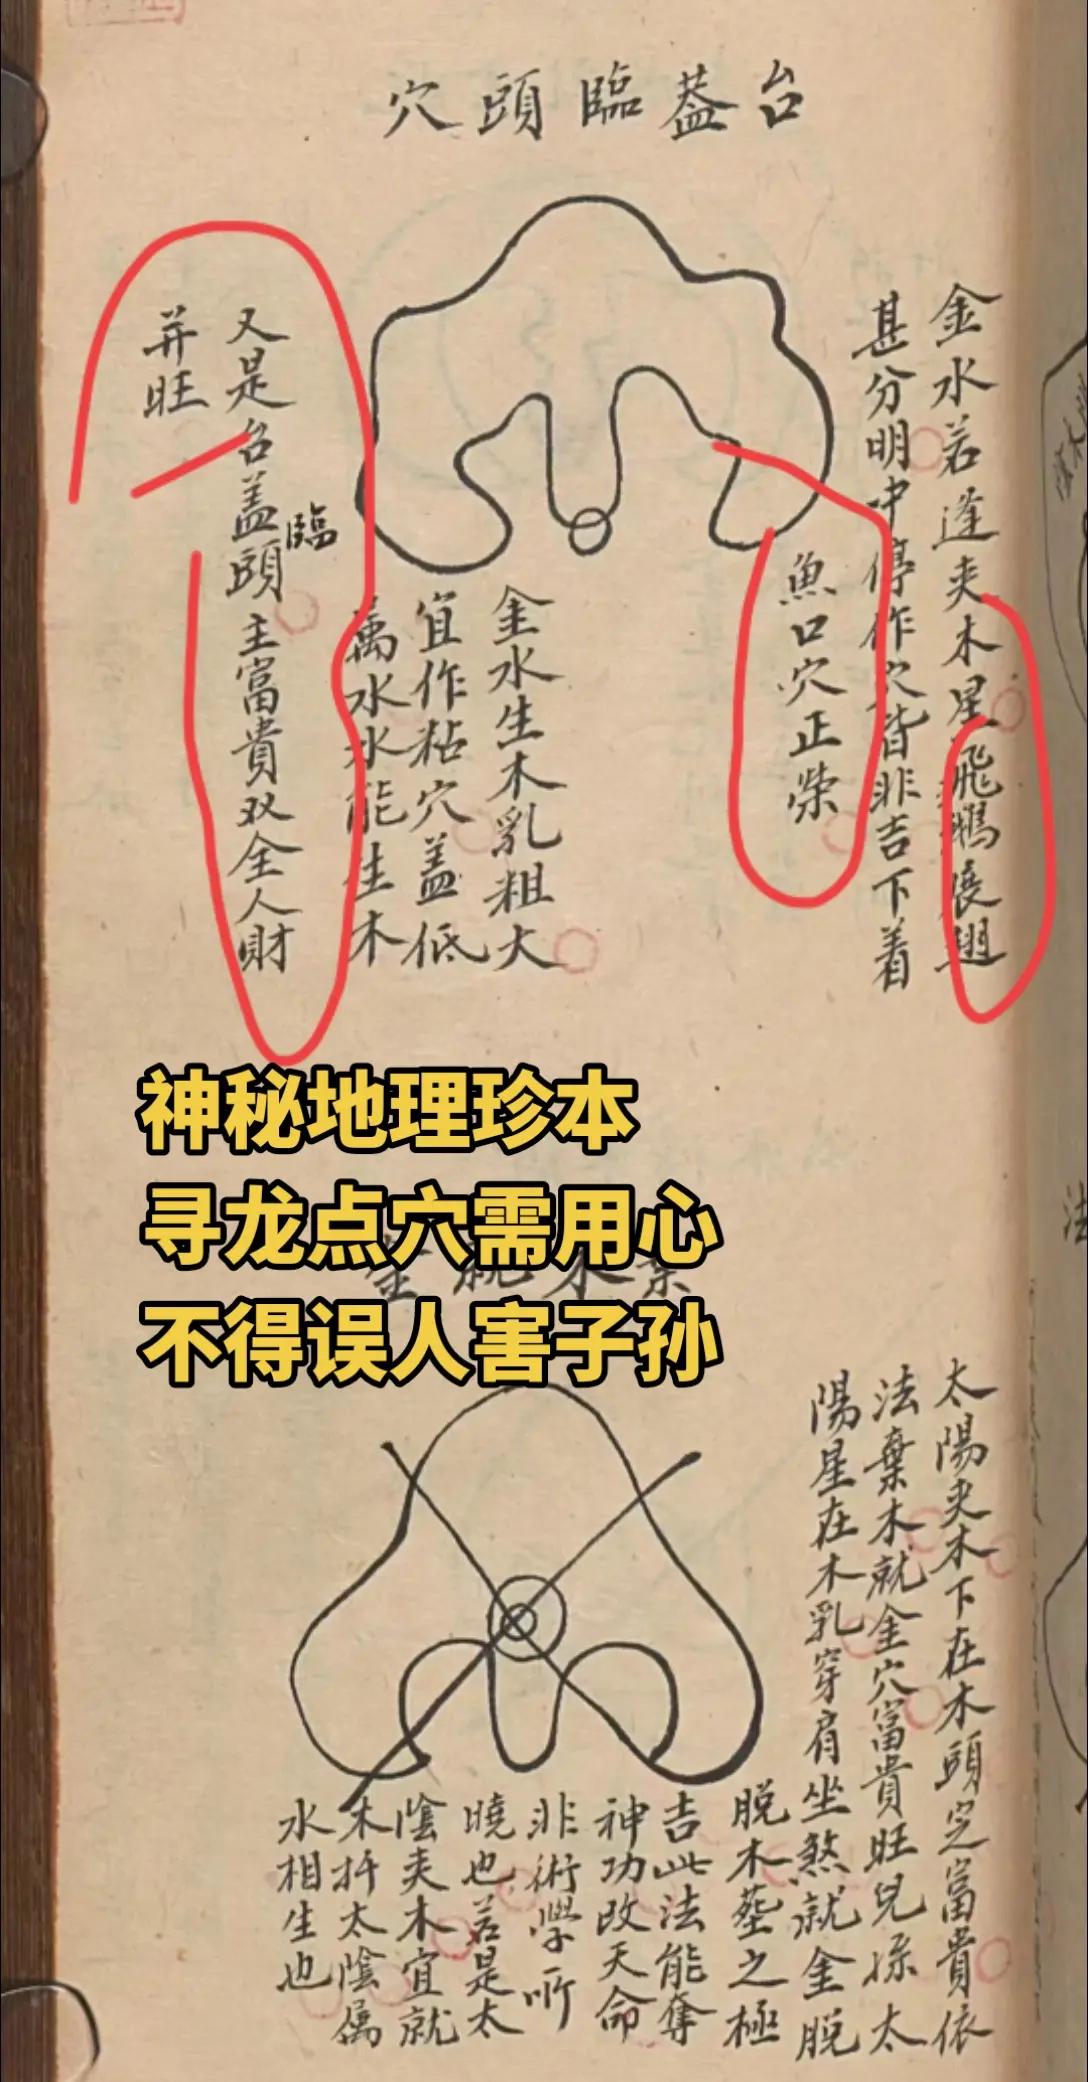 台葢臨頭穴
金水若逢夾木星飛鵝展翅
甚分明中停作穴皆非吉下着
魚口穴正榮
金水生木乳粗大
宜作粘穴蓋低
属水水能生木
臨
又是台蓋頭主富貴双全人財
并旺
神秘地理珍本
寻龙点穴需用心
不得误人害子孙
棄木就金
太陽夾木下在木頭定富貴依
法棄木就金穴富貴旺兒孫太
陽星在木乳穿肩坐煞就金脱
脱木塟之極
吉此法能奪
神功改天命
非術學所
曉也若是太
陰夾木宜就
木扦太陰属
水相生也
法